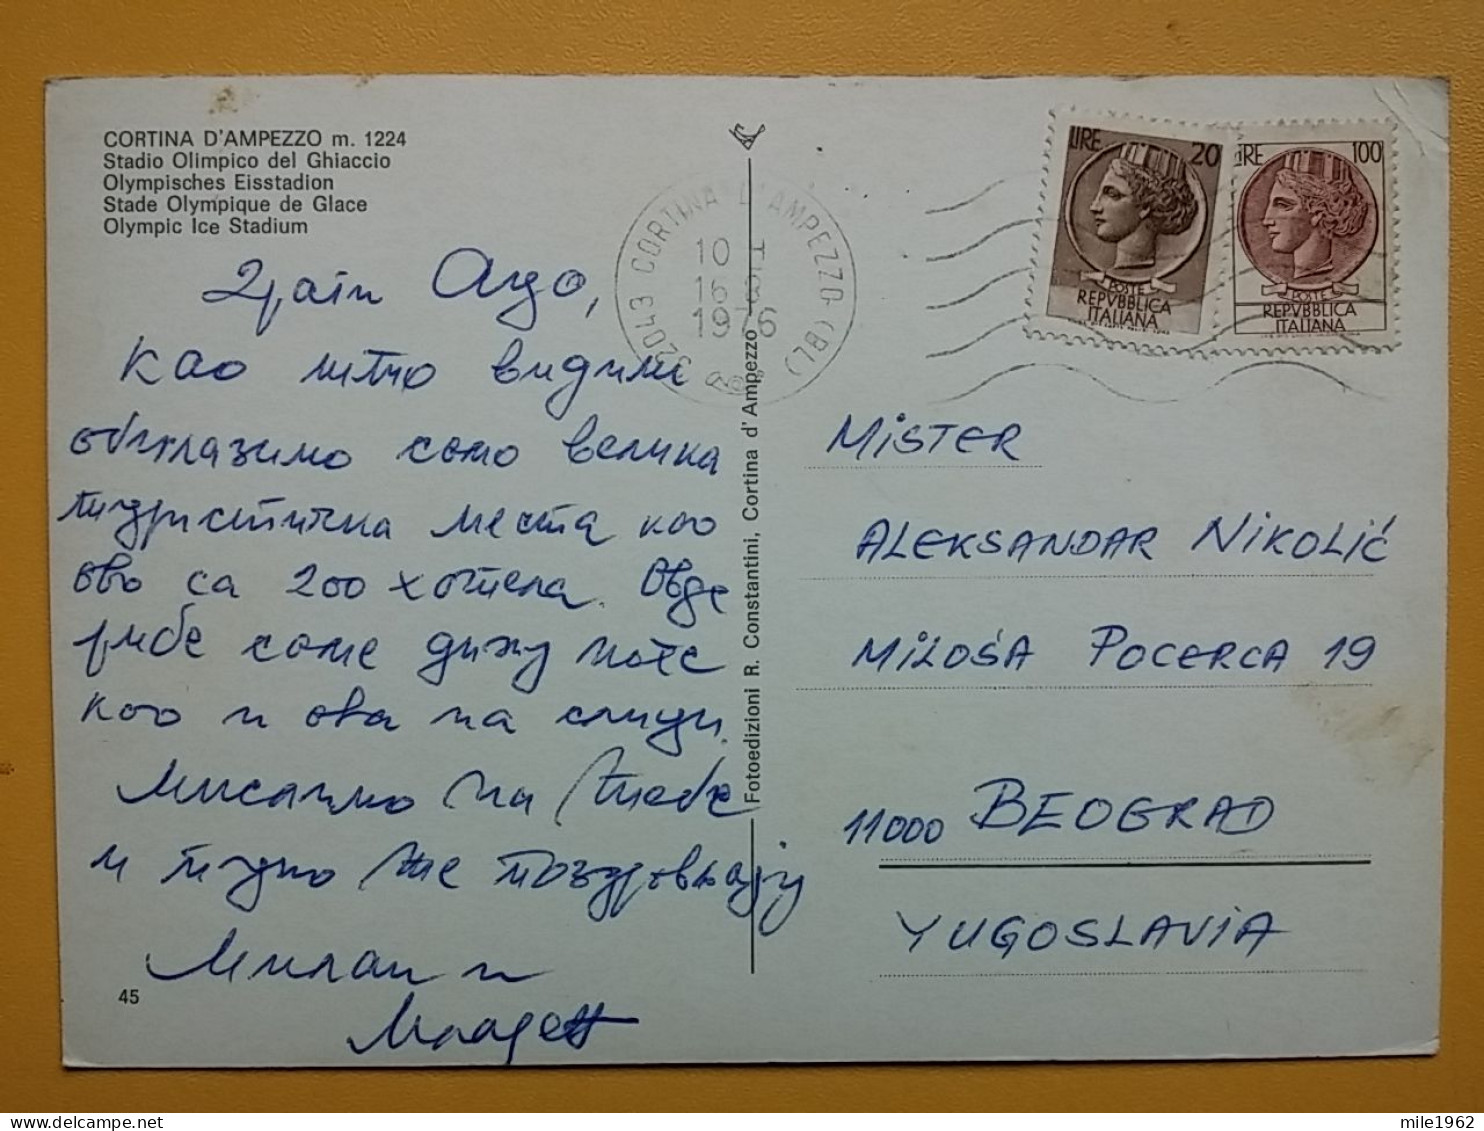 CORTINA D'AMPEZZO m. 1224
Stadio Olimpico del Ghiaccio
Olympisches Eisstadion
Stade Olympique de Glace
Olympic Ice Stadium
32043 CORTINA D'AMPEZZO (BL)
10
16 8
1976
LIRE 20
POSTE
REPVBBLICA
ITALIANA
LIRE 100
POSTE
REPVBBLICA
ITALIANA
Ацо,
као што видиш
обилазимо само велика
туристичка места као
ово са 200 хотела. Овде
рибе саме дижу
као и ова на слици.
Мислимо на тебе
и пуно те поздрављају
Милан и
Fotoedizioni R. Constantini, Cortina d'Ampezzo
MiSTER
ALEKSANDAR NiKOLiĆ
MiLOŠA POCERCA 19
11000 BEOGRAD
YUGOSLAViA
45
mile1962